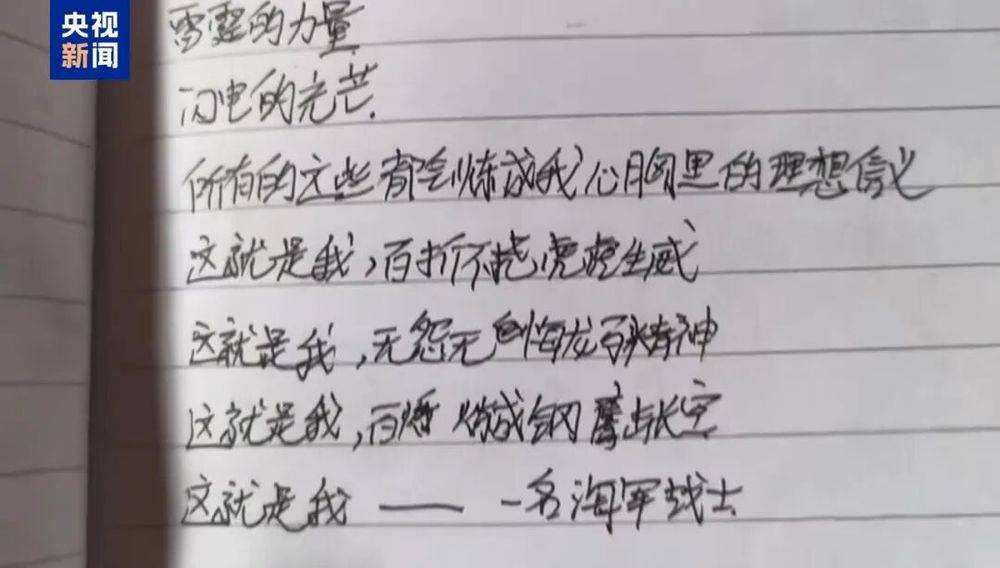 央视
新闻
雷霆的力量
闪电的光芒.
所有的这些都会炼成我心胸里的理想信义
这就是我,百折不挠虎虎生威
这就是我,无怨无悔龙马精神
这就是我,百 炼成钢 击长空
这就是我 —— 一名海军战士